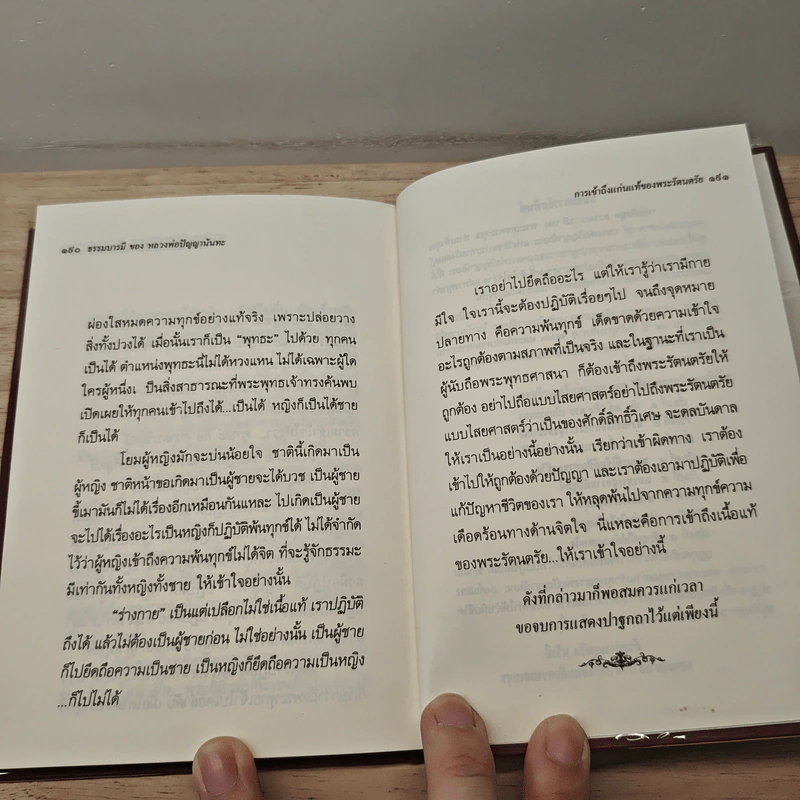 ๑๙๐ ธรรมบารมี ของ หลวงพ่อปัญญานันทะ
ผ่องใสหมดความทุกข์อย่างแท้จริง เพราะปล่อยวาง
สิ่งทั้งปวงได้ เมื่อนั้นเราก็เป็น “พุทธะ” ไปด้วย ทุกคน
เป็นได้ ตำแหน่งพุทธะนี่ไม่ได้หวงแหน ไม่ได้เฉพาะผู้ใด
ใครผู้หนึ่ง เป็นสิ่งสาธารณะที่พระพุทธเจ้าทรงค้นพบ
เปิดเผยให้ทุกคนเข้าไปถึงได้...เป็นได้ หญิงก็เป็นได้ชาย
ก็เป็นได้
โยมผู้หญิงมักจะบ่นน้อยใจ ชาตินี้เกิดมาเป็น
ผู้หญิง ชาติหน้าขอเกิดมาเป็นผู้ชายจะได้บวช เป็นผู้ชาย
ขี้เมามันก็ไม่ได้เรื่องอีกเหมือนกันแหละ ไปเกิดเป็นผู้ชาย
จะไปได้เรื่องอะไรเป็นหญิงก็ปฏิบัติพ้นทุกข์ได้ ไม่ได้จำกัด
ไว้ว่าผู้หญิงเข้าถึงความพ้นทุกข์ไม่ได้จิต ที่จะรู้จักธรรมะ
มีเท่ากันทั้งหญิงทั้งชาย ให้เข้าใจอย่างนั้น
“ร่างกาย” เป็นแต่เปลือกไม่ใช่เนื้อแท้ เราปฏิบัติ
ถึงได้ แล้วไม่ต้องเป็นผู้ชายก่อน ไม่ใช่อย่างนั้น เป็นผู้ชาย
ก็ไปยึดถือความเป็นชาย เป็นหญิงก็ยึดถือความเป็นหญิง
...ก็ไปไม่ได้
การเข้าถึงแก่นแท้ของพระรัตนตรัย ๑๙๑
เราอย่าไปยึดถืออะไร แต่ให้เรารู้ว่าเรามีกาย
มีใจ ใจเรานี้จะต้องปฏิบัติเรื่อยๆไป จนถึงจุดหมาย
ปลายทาง คือความพ้นทุกข์ เด็ดขาดด้วยความเข้าใจ
อะไรถูกต้องตามสภาพที่เป็นจริง และในฐานะที่เราเป็น
ผู้นับถือพระพุทธศาสนา ก็ต้องเข้าถึงพระรัตนตรัยให้
ถูกต้อง อย่าไปถือแบบไสยศาสตร์อย่าไปถึงพระรัตนตรัย
แบบไสยศาสตร์ว่าเป็นของศักดิ์สิทธิ์วิเศษ จะดลบันดาล
ให้เราเป็นอย่างนี้อย่างนั้น เรียกว่าเข้าผิดทาง เราต้อง
เข้าไปให้ถูกต้องด้วยปัญญา และเราต้องเอามาปฏิบัติเพื่อ
แก้ปัญหาชีวิตของเรา ให้หลุดพ้นไปจากความทุกข์ความ
เดือดร้อนทางด้านจิตใจ นี่แหละคือการเข้าถึงเนื้อแท้
ของพระรัตนตรัย...ให้เราเข้าใจอย่างนี้
ดังที่กล่าวมาก็พอสมควรแก่เวลา
ขอจบการแสดงปาฐกถาไว้แต่เพียงนี้